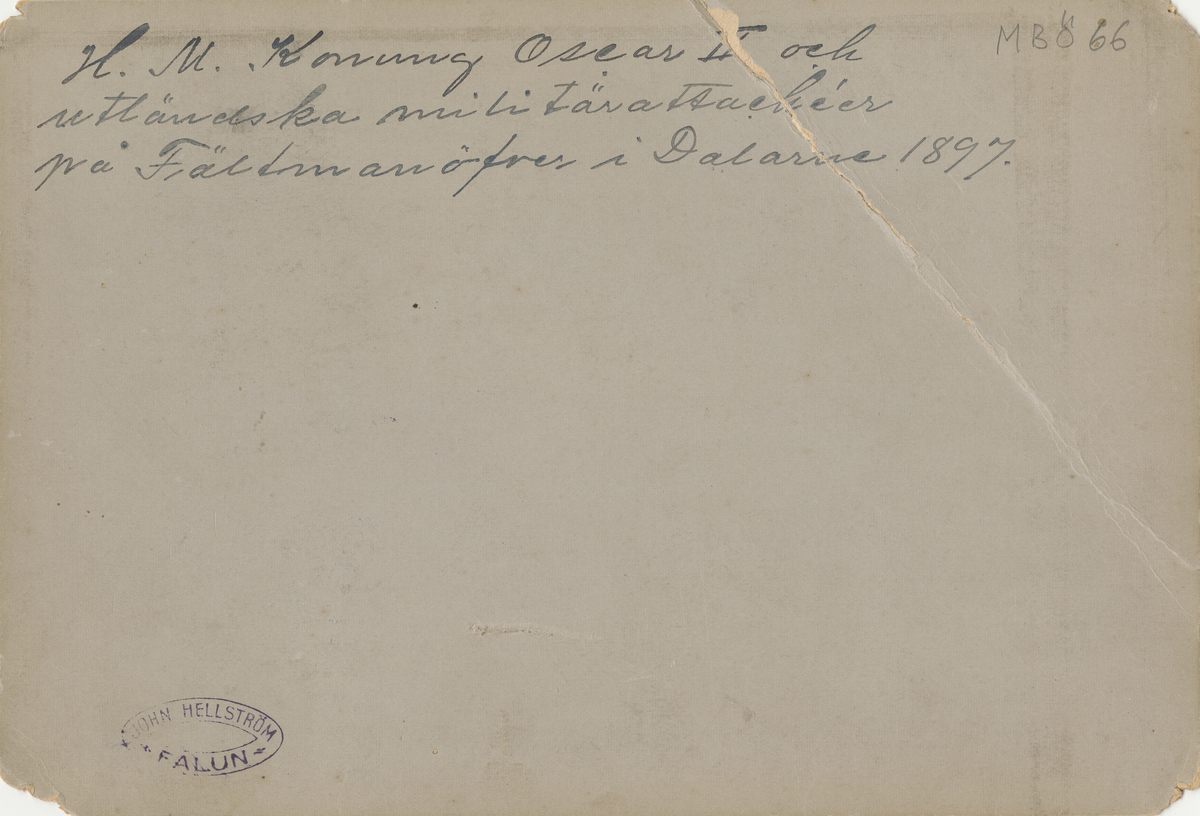 MBÖ 66
H. M. Konung Oscar II och
utländska militärattachéer
på Fältmanöfver i Dalarne 1897.
JOHN HELLSTRÖM
FALUN